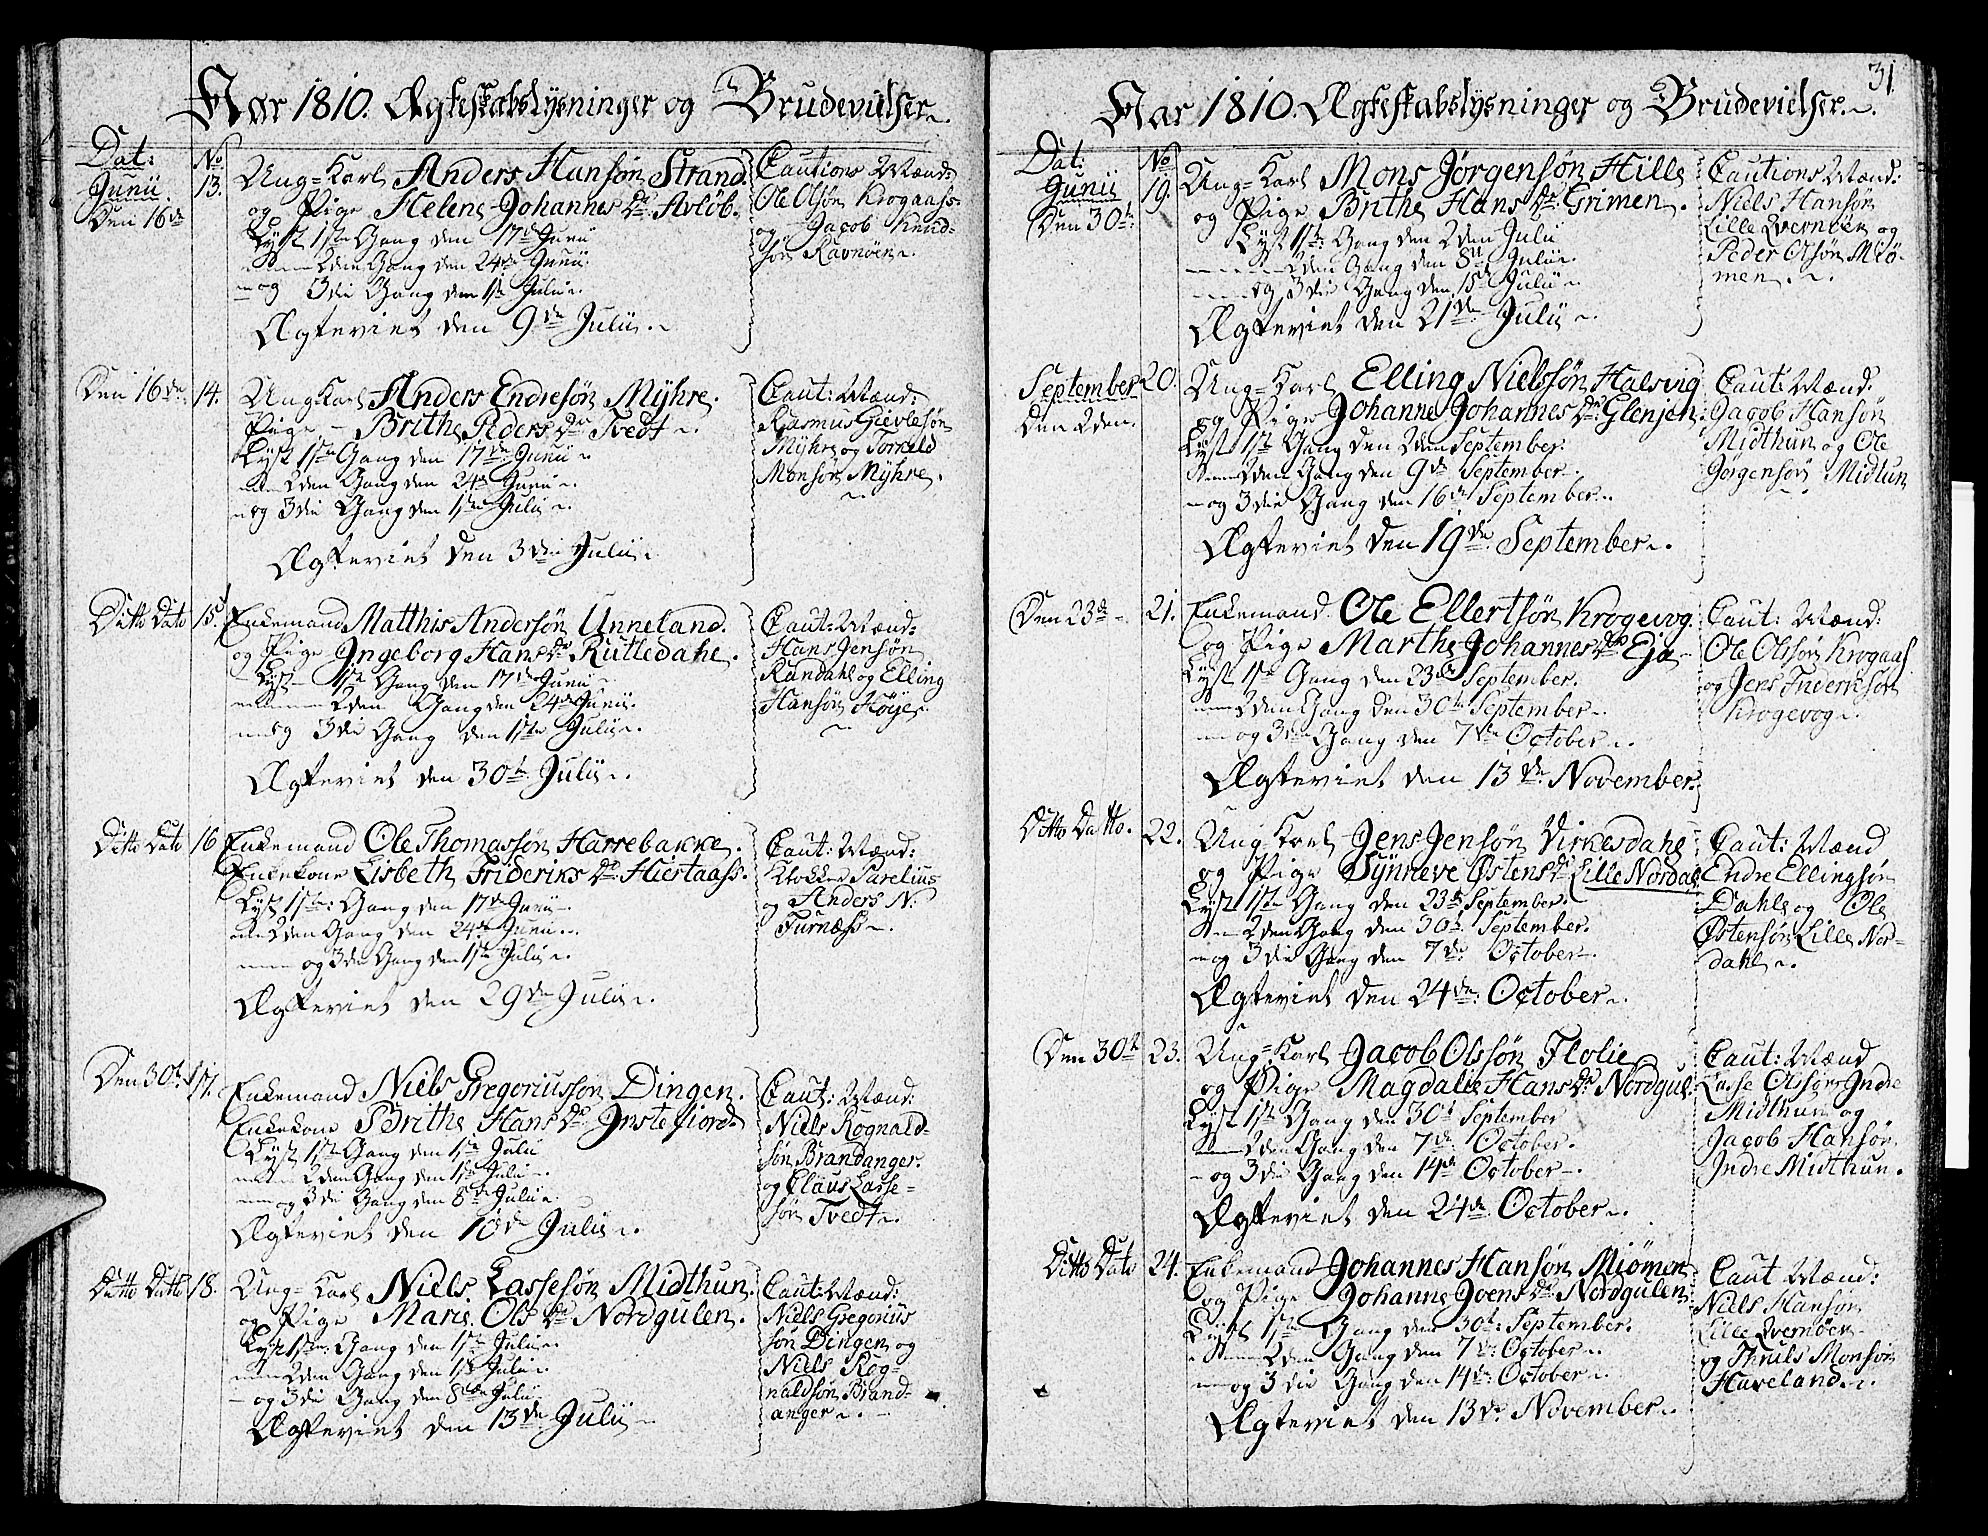 Aar 1810. Ægteskabslysninger og Brudevielser.
Dat: No
Junii 13. Ung=Karl Anders Hansøn Strand.
Den 16de og Pige Helene Johannes Dr. Avløb.
Lyst 1ste Gang den 17de Junii
2den Gang den 24de Junii.
og 3die Gang den 1ste Julii.
Ægteviet den 9de Julii.
Cautions Mænd:
Ole Olsøn Krogaas
og Jacob Knud=
søn Ravnøen.
Den 16de 14. Ung Karl Anders Endresøn Mÿhre.
Pige - Brithe Peders Dr. Tvedt
Lyst 1ste Gang den 17de Junii
2den Gang den 24de Junii.
og 3die Gang den 1ste Julii.
Ægteviet den 3die Julii.
Caut: Mænd:
Rasmus Gievlesøn
Mÿhre og Torkeld
Monsøn Mÿhre.
Ditto Dato 15. Enkemand Matthis Andersøn Unneland.
og Pige Ingeborg Hans Dr. Ruttedahl.
Lyst 1ste Gang den 17de Junii
2den Gang den 24de Junii.
og 3die Gang den 1ste Julii.
Ægteviet den 30te Julii.
Caut: Mænd:
Hans Jensøn
Randahl og Elling
Hansøn Høÿe.
Ditto Dato 16 Enkemand Ole Thomassøn Harrebakke.
Enkekone Lisbeth Frideriks Dr. Hiertaass.
Lyst 1ste: Gang den 17de Junii
2den Gang den 24de Junii.
og 3die Gang den 1ste Julii.
Ægteviet den 29de Julii.
Caut: Mænd:
Klokker Sarelius
og Anders N:
Furnæss.
Den 30te 17. Enkemand Niels Gregoriussøn Dingen.
Enkekone Brithe Hans Dr. Ynstefiord.
Lyst 1ste Gang den 1ste Julii
2den Gang den 1ste Julii.
og 3die Gang den 8de Julii.
Ægteviet den 10de Julii.
Caut: Mænd:
Niels Rognald=
søn Brandanger.
og Claus Lasse=
søn Tvedt.
Ditto Datto 18. Ung=Karl Niels Lassesøn Midthun.
og Pige Marie Ols Dr. Nordgulen.
Lyst 1ste: Gang den 1ste Julii.
2den Gang den 1ste Julii.
og 3die Gang den 8de Julii.
Ægteviet den 13de Julii
Caut: Mænd:
Niels Gregorius
søn Dingen og
Niels Rog=
naldsøn Brand=
anger.
31.
Aar 1810. Ægteskabslysninger og Brudevielser.
Dat: No
Junii 19. Ung=Karl Mons Jørgensøn Hille
Den 30te: og Pige Brithe Hans Dr. Grimen.
Lyst 1ste: Gang den 2den Julii
2den Gang den 8de Julii.
og 3die Gang den 15de Julii
Ægteviet den 21de Julii.
Cautions Mænd:
Niels Hansøn
Lille Qvernøen og
Peder Olsøn Miø=
men.
September 20. Ung=Karl Elling Nielssøn Halsvig
Den 2den. og Pige Johanne Johannes Dr. Glenjen.
Lyst 1ste Gang den 2den September.
2den Gang den 9de September.
og 3die Gang den 16de September.
Ægteviet den 19de September.
Caut: Mænd:
Jacob Hansøn
Midthun og Ole
Jørgensøn Midtun
Den 23de 21. Enkemand Ole Ellertsøn Krogevog.
og Pige Marthe Johannes Dr. Eja
Lyst 1ste Gang den 23de September.
2den Gang den 30te September.
og 3die Gang den 7de October.
Ægteviet den 13de November.
Caut: Mænd:
Ole Olssøn Krogaas
og Jens Friderichsøn
Krogevog.
Ditto Datto. 22. Ung Karl Jens Jensøn Virkesdahl
og Pige Sÿnneve Østens Dr. Lille Nordal
Lyst 1ste Gang den 23de September.
2den Gang den 30te September.
og 3die Gang den 7de October.
Ægteviet den 24de: October.
Caut: Mænd
Endre Ellingsøn
Dahle og Ole
Østensøn Lille Nor=
dahl.
Den 30te 23. Ung=Karl Jacob Olssøn Flolie
og Pige Magdalie Hans Dr. Nordgul:
Lyst 1ste Gang den 30te September
2den Gang den 7de October.
og 3die Gang den 14de October.
Ægteviet den 24de October.
Caut: Mænd
Lasse Olssøn Indre
Midthun og
Jacob Hansøn
Indre Midthun.
Ditto Dato 24. Enkemand Johannes Hansøn Miømen
og Pige Johanne Joens Dr. Nordgulen
Lyst 1ste Gang den 30te: September.
2den Gang den 7de: October.
og 3die Gang den 14de: October.
Ægteviet den 13de November.
Caut Mænd:
Niels Hansøn
Lille Qvernøen
og Truls Monsøn
Haveland.